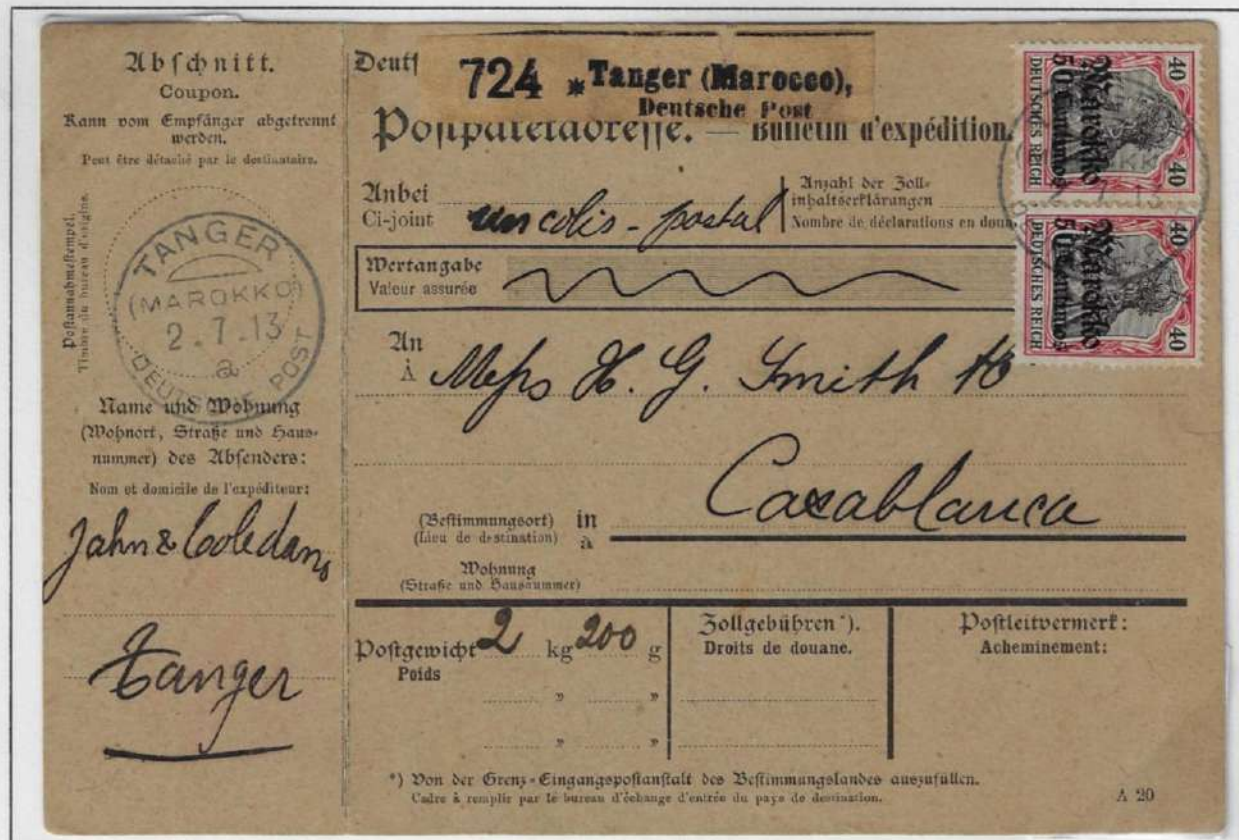 Abschnitt.
Coupon.
Kann vom Empfänger abgetrennt
werden.
Peut être détaché par le destinataire.
Postannahmestempel.
Timbre du bureau d'origine.
TANGER
(MAROKKO)
2.7.13
a
DEUTSCHE POST
Name und Wohnung
(Wohnort, Straße und Haus-
nummer) des Absenders:
Nom et domicile de l'expéditeur:
Jahn & Toledano
Tanger
Deut
724 * Tanger (Marocco),
Deutsche Post
Postpaketadresse. — Bulletin d'expédition.
Anbei
Ci-joint
un colis-postal
Anzahl der Zoll-
inhaltserklärungen
Nombre de déclarations en doua
Wertangabe
Valeur assurée
An
À
Messs H. G. Smith
(Bestimmungsort) in
(Lieu de destination) à
Casablanca
Wohnung
(Straße und Hausnummer)
Postgewicht 2 kg 200 g
Poids
" "
" "
Zollgebühren*).
Droits de douane.
Postleitvermerk:
Acheminement:
*) Von der Grenz-Eingangspostanstalt des Bestimmungslandes auszufüllen.
Cadre à remplir par le bureau d'échange d'entrée du pays de destination.
A 20
40 40
DEUTSCHES REICH
Marokko
50 Centimos
40 40
DEUTSCHES REICH
Marokko
50 Centimos